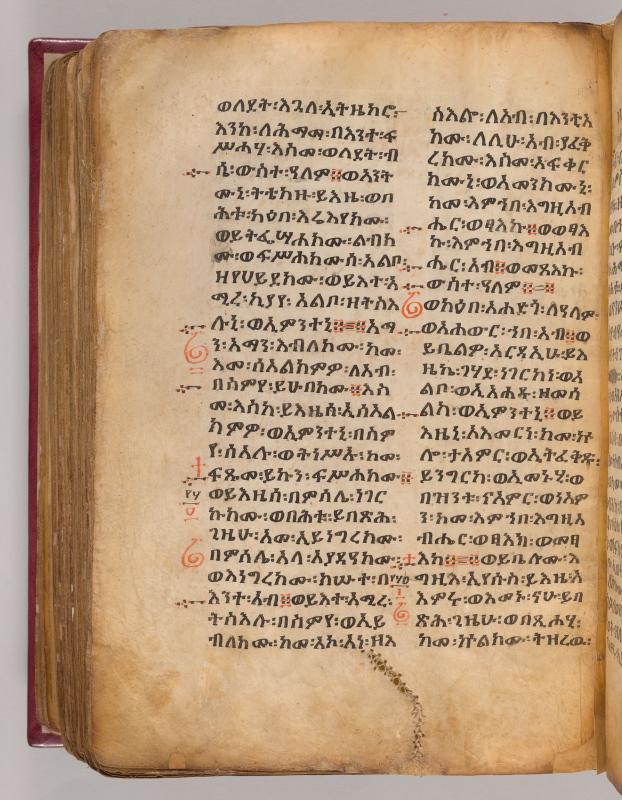 ወለደት፡እጓለ፡ኢትዜከሮ፡
እንከ፡ለሕማማ፡በእንተ፡ፍ
ሥሐሃ፡እስመ፡ወለደት፡ብ
ሲ፡ውስተ፡ዓለም፨ወአንት
ሙኒ፡ትቴክዙ፡ይእዜ፡ወበ
ሕቱ፡ካዕበ፡እሬእየክሙ፡
ወይትፌሣሕክሙ፡ልብክ
ሙ፡ወፍሥሐክሙሰ፡አልቦ፡
ዘየሀይደክሙ፡ወይእተ፡አ
ሚረ፡ኪያየ፡አልቦ፡ዘትስእ
ሉኒ፡ወኢምንተኒ፨=፨አማ
ን፡አማን፡እብለክሙ፡ከመ፡
እመ፡ሰአልክምዎ፡ለአብ፡
በስምየ፡ይሁበክሙ፨እስ
መ፡እስከ፡ይእዜሰ፡ኢሰአል
ክምዎ፡ወኢምንተኒ፡በስም
የ፡ሰአሉ፡ወትነሥኡ፡ከመ፡
ፍጹመ፡ይኩን፡ፍሥሐክሙ፨
ወይእዜሰ፡በምሳሌ፡ነገር
ኩክሙ፡ወበሕቱ፡ይበጽሕ፡
ጊዜሁ፡አመ፡ኢይነግረክሙ፡
በምሳሌ፡አላ፡እያደዓክሙ፡
ወእነግረክሙ፡ክሡተ፡በ
እንተ፡አብ፨ወይእተ፡አሚረ፡
ትስእሉ፡በስምየ፡ወኢይ
ብለክሙ፡ከመ፡አኮ፡አነ፡ዘእ
ስእሎ፡ለአብ፡በእንቲአ
ክሙ፡ለሊሁ፡አብ፡ያፈቅ
ረክሙ፡እስመ፡አፍቀር
ክሙኒ፡ወአመንክሙኒ፡
ከመ፡እምኀበ፡እግዚአብ
ሔር፡ወፃእኩ፨ወወፃእ
ኩ፡እምኀበ፡እግዚአብ
ሔር፡አብ፨ወመጻእኩ፡
ውስተ፡ዓለም፨=፨
ወካዕበ፡አሐድጎ፡ለዓለም፡
ወአሐውር፡ኀበ፡አብ፨ወ
ይቤልዎ፡አርዳኢሁ፡ይእ
ዜኬ፡ገሃደ፡ነገርከነ፡ወአ
ልቦ፡ወኢአሐዱ፡ዘመሰ
ልከ፡ወኢምንተኒ፨ወይ
እዜኒ፡አእመርነ፡ከመ፡ኵ
ሎ፡ታአምር፡ወኢትፈቅድ፡
ይንግርከ፡ወኢመኑሂ፡ወ
በዝንቱ፡ነአምር፡ወነአም
ን፡ከመ፡እምኀበ፡እግዚአ
ብሔር፡ወፃእከ፡ወመፃ
እከ፨=፨ወይቤሎሙ፡እ
ግዚእ፡ኢየሱስ፡ይእዜ፡እ
እምኑ፡ወአመኑ፡ናሁ፡ይበ
ጽሕ፡ጊዜሁ፡ወበጺሐሂ፡
ከመ፡ኵልክሙ፡ትዝረዉ፡